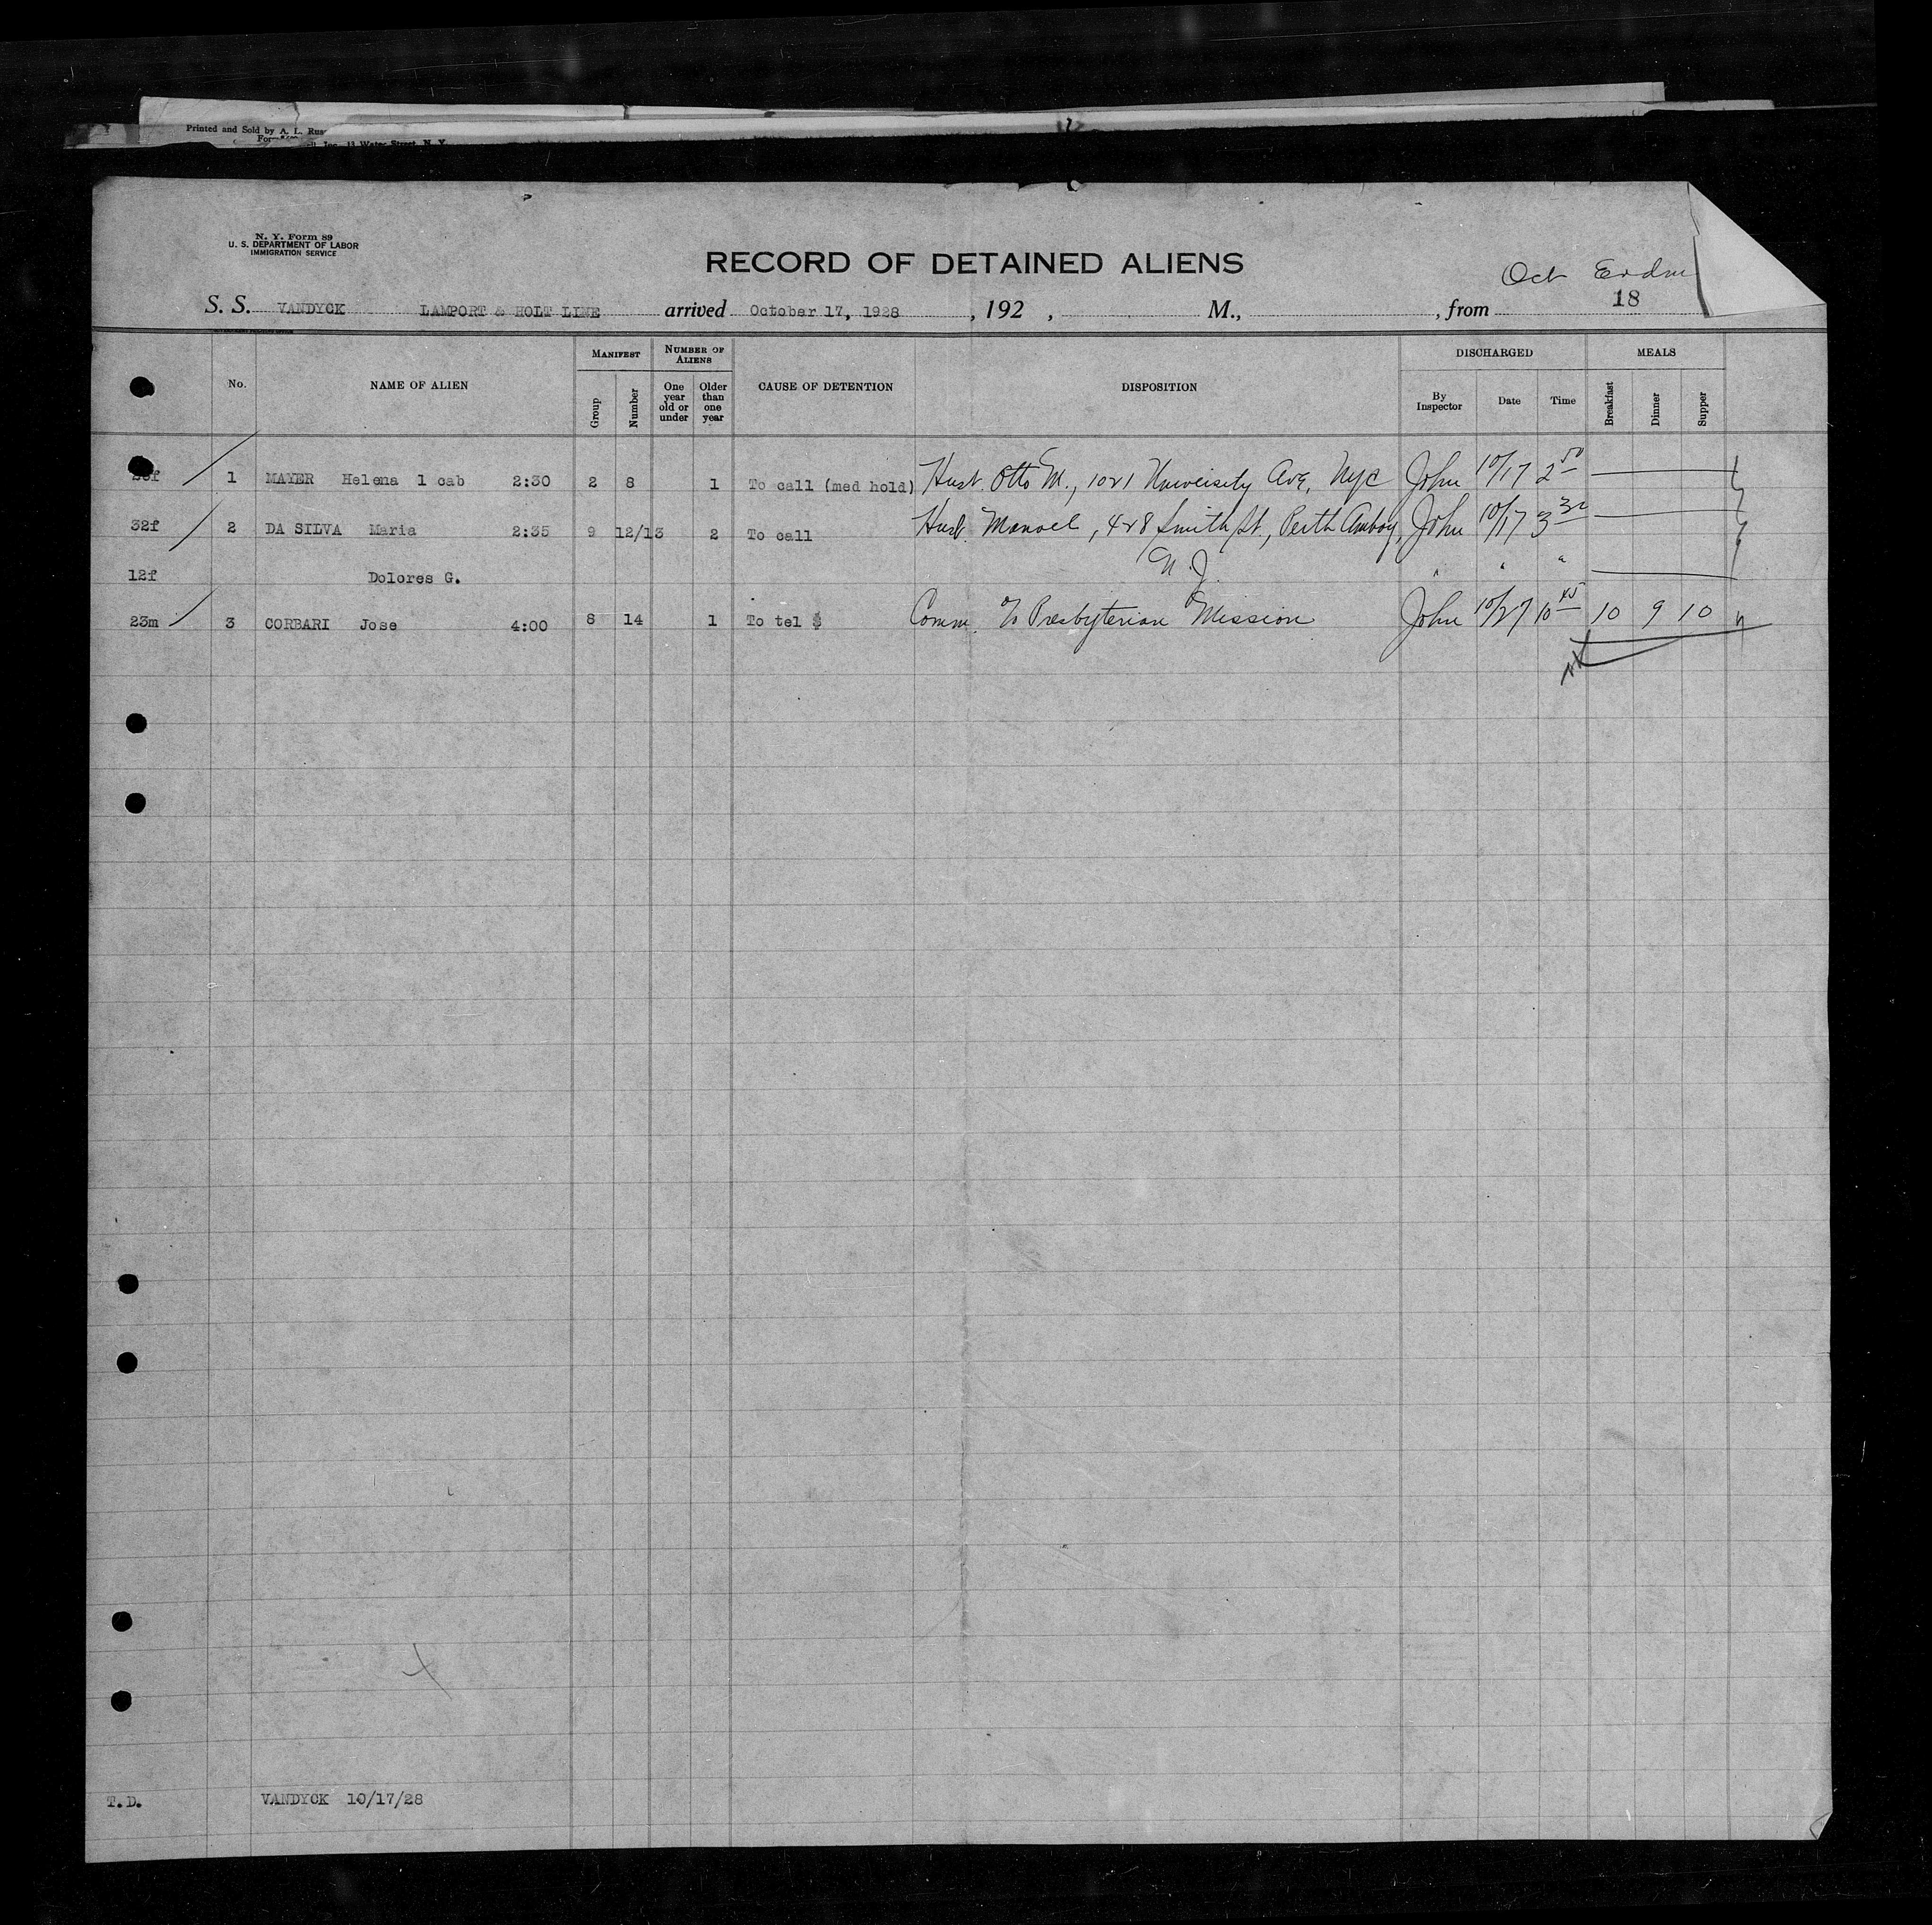 Printed and Sold by A. L. Rus
For
Inc. 13 Water Street, N. Y.
N. Y. Form 89
U. S. DEPARTMENT OF LABOR
IMMIGRATION SERVICE
RECORD OF DETAINED ALIENS
Oct
S. S. VANDYCK LAMPORT & HOLT LINE arrived October 17, 1928, 192 , M., , from 18
No. NAME OF ALIEN MANIFEST Group Number NUMBER OF ALIENS One year old or under Older than one year CAUSE OF DETENTION DISPOSITION DISCHARGED By Inspector Date Time MEALS Breakfast Dinner Supper
1 MAYER Helena 1 cab 2:30 2 8 1 To call (med hold) Husb. Otto M., 1021 University Ave, Nyc John 10/17 2 50
32f 2 DA SILVA Maria 2:35 9 12/13 2 To call Husb. Manoel, 428 Smith St., Perth Amboy, John 10/17 3 30
12f Dolores G. N. J. " " "
23m 3 CORBARI Jose 4:00 8 14 1 To tel $ Comm. To Presbyterian Mission John 10/27 10 45 10 9 10
T.D. VANDYCK 10/17/28